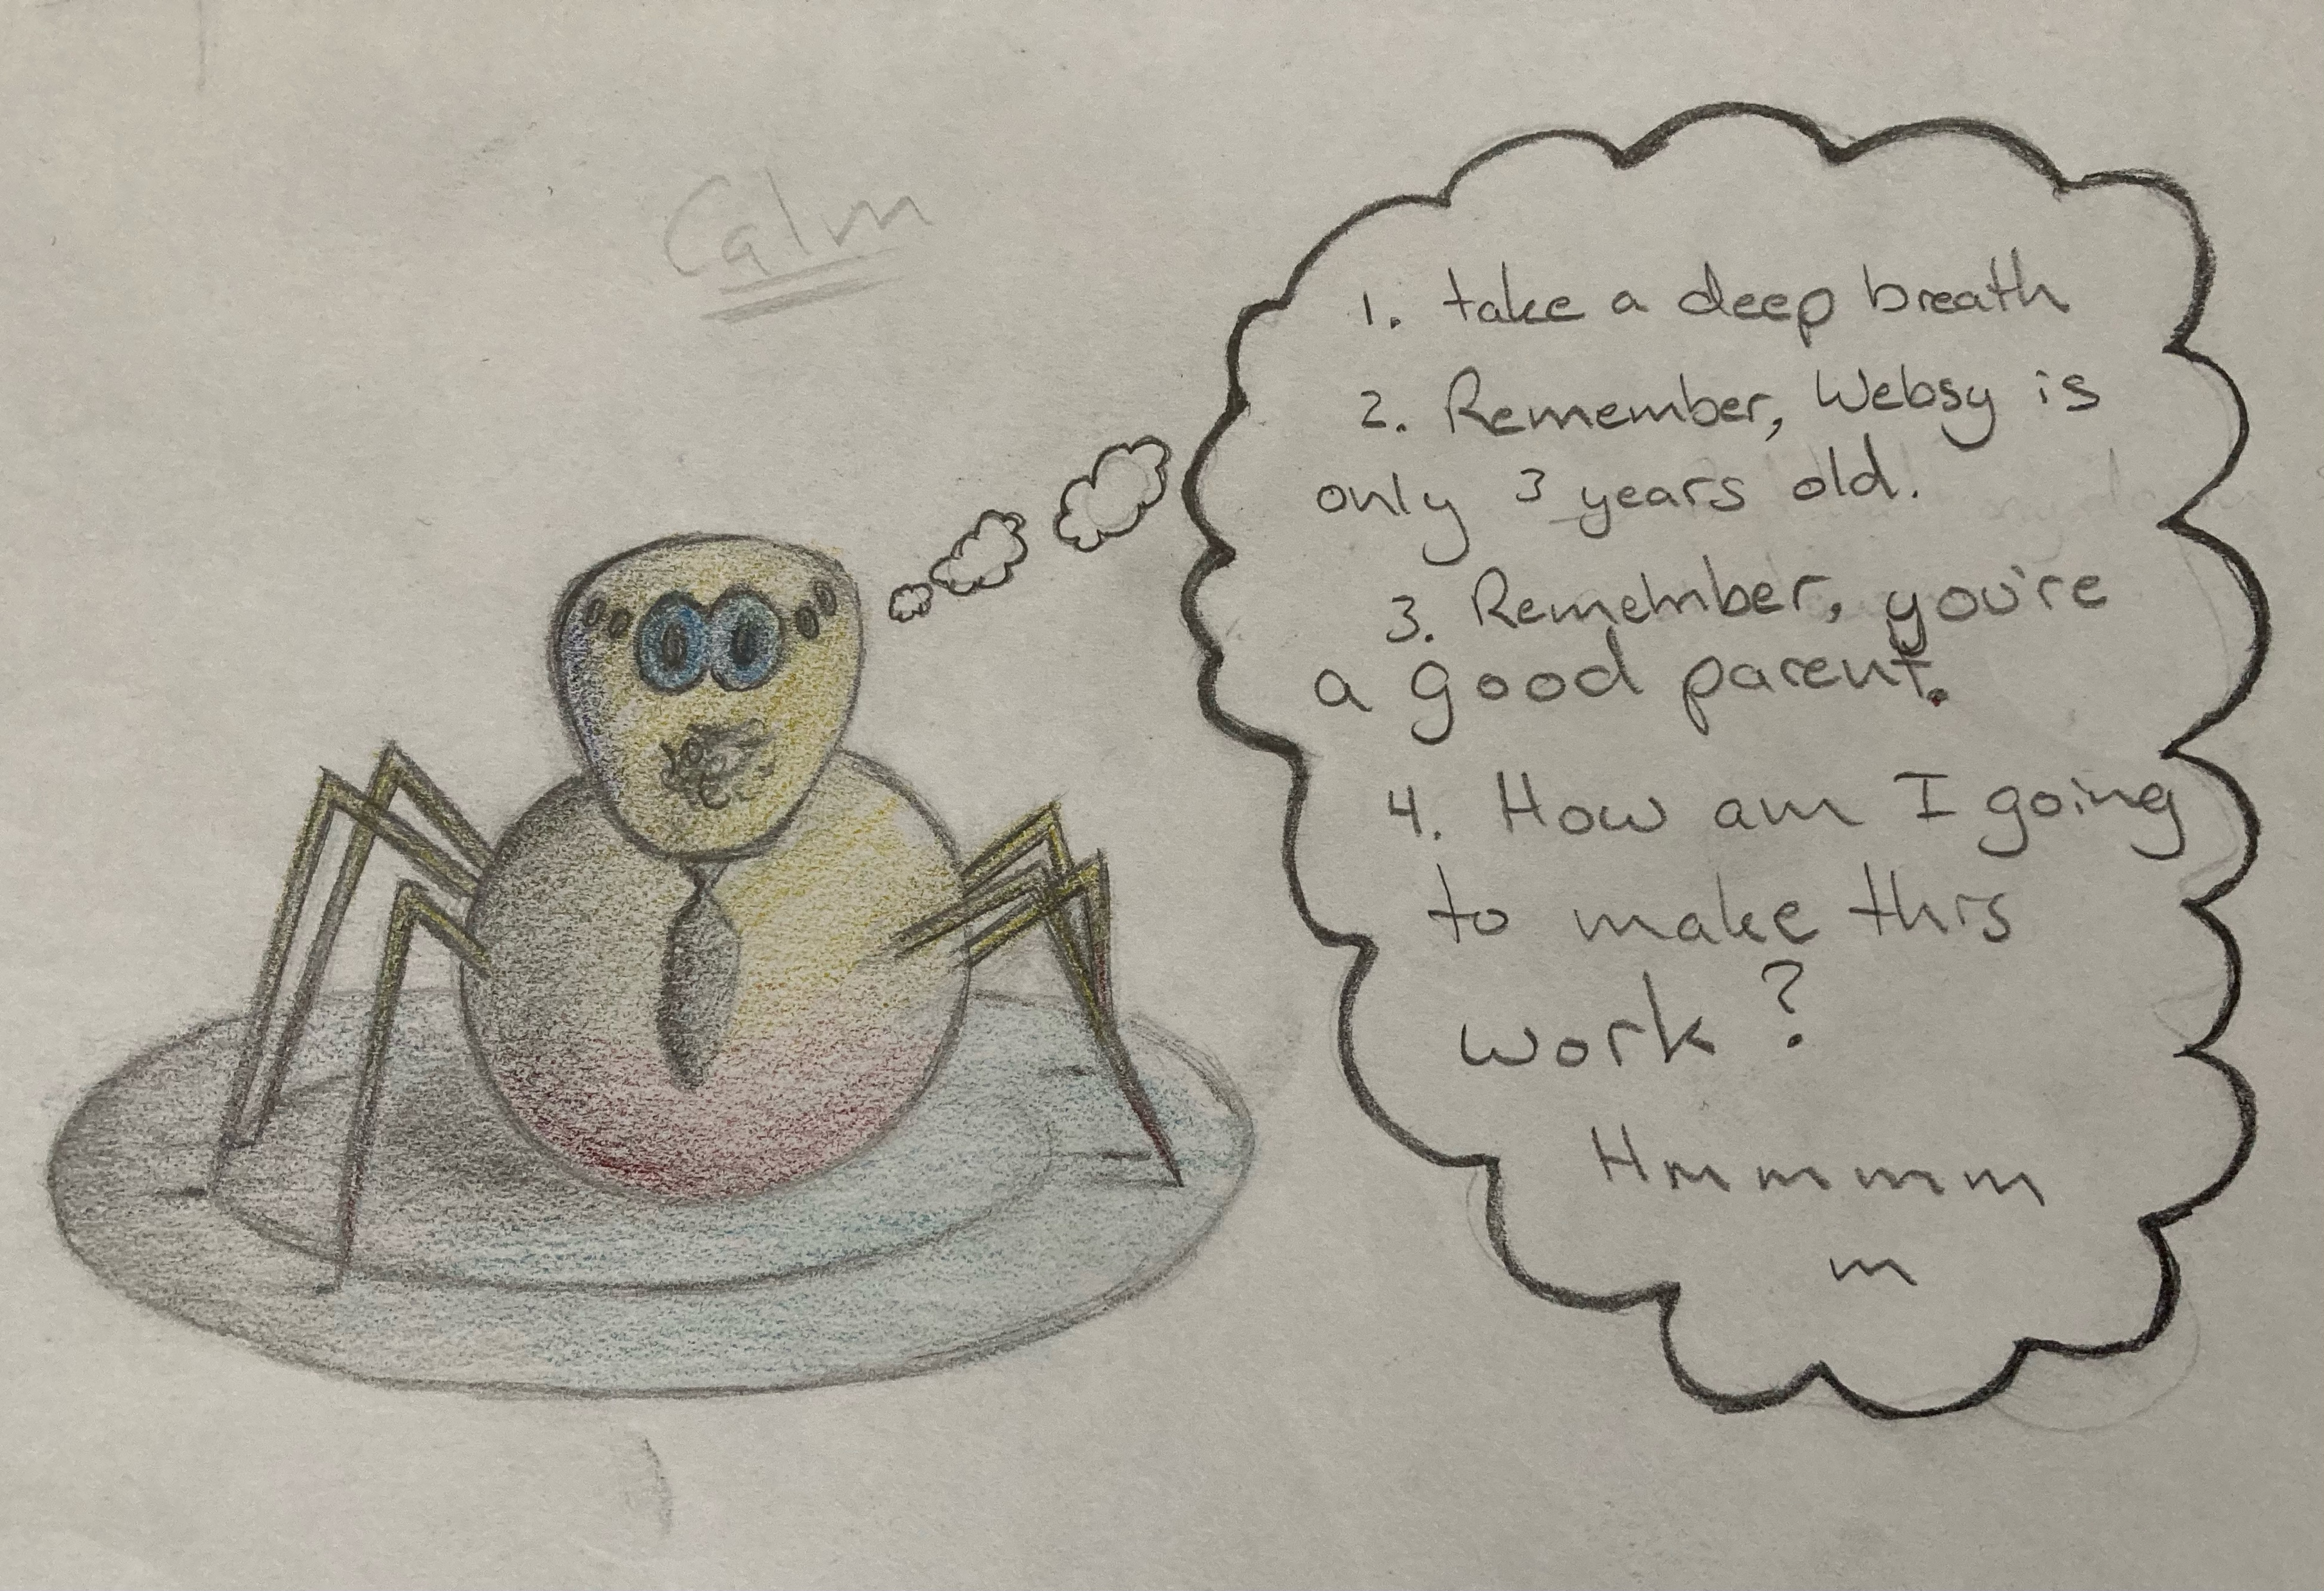 Calm
1. take a deep breath
2. Remember, Websy is
only 3 years old.
3. Remember, you're
a good parent.
4. How am I going
to make this
work?
Hmmmmm
m